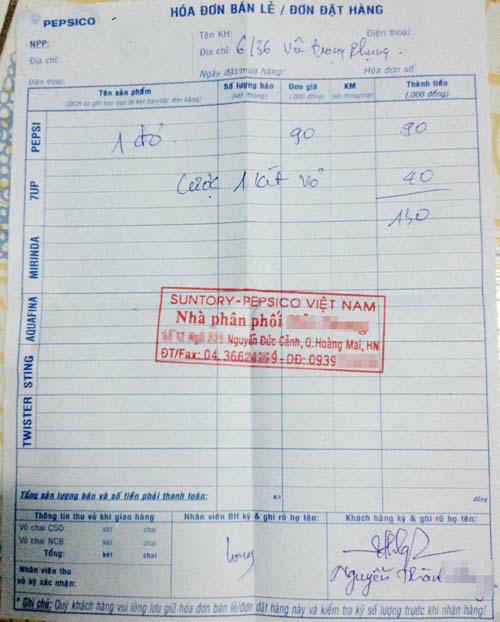 PEPSICO
HÓA ĐƠN BÁN LẺ / ĐƠN ĐẶT HÀNG
NPP:
Tên KH:
Điện thoại:
Địa chỉ:
Địa chỉ: 6/36 Vũ Trọng Phụng.
Điện thoại:
Ngày đặt/mua hàng:
Hóa đơn số:
Tên sản phẩm
Số lượng bán
Đơn giá
KM
Thành tiền
(két /thùng)
(.000 đồng)
(két /thùng/chai)
(.000 đồng)
PEPSI
1 đỏ
90
90
7UP
Cược 1 két vỏ
40
130
MIRINDA
AQUAFINA
STING
TWISTER
SUNTORY-PEPSICO VIỆT NAM
Nhà phân phối
Nguyễn Đức Cảnh, Q.Hoàng Mai, HN
ĐT/Fax: 04. - DĐ: 0939
Tổng sản lượng bán và số tiền phải thanh toán:
Két
đồng
Thông tin thu vỏ khi giao hàng
Nhân viên BH ký & ghi rõ họ tên:
Khách hàng ký & ghi rõ họ tên:
Vỏ chai CSD: két chai
Vỏ chai NCB: két chai
Tổng: két chai
Nhân viên thu
vỏ ký xác nhận:
Long
Nguyễn
* Ghi chú: Quý khách hàng vui lòng lưu giữ hóa đơn bán lẻ/đơn đặt hàng này và kiểm tra kỹ số lượng trước khi nhận hàng!